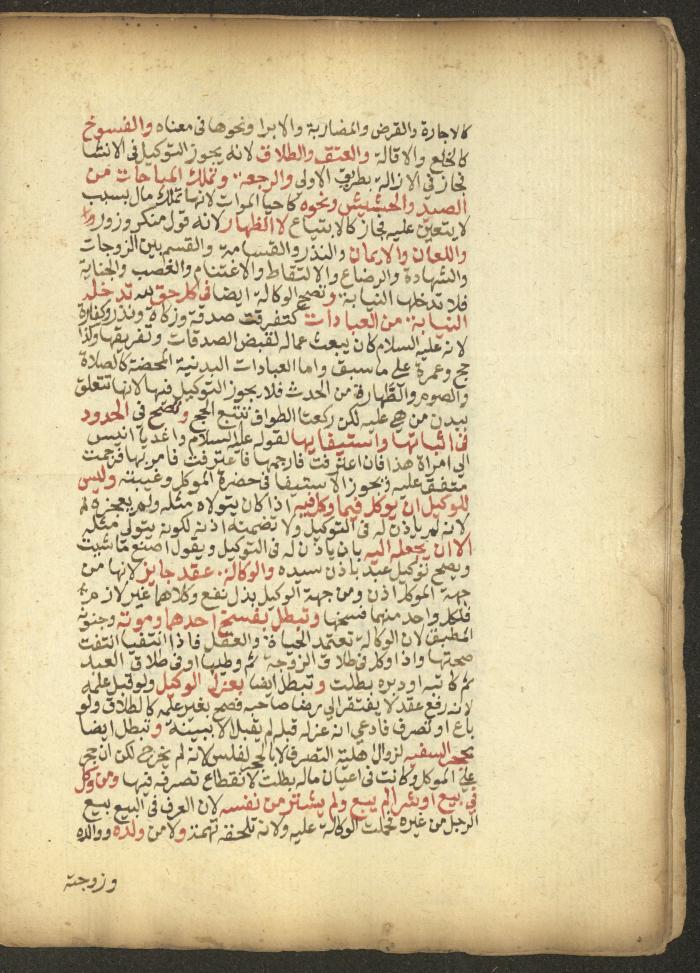 كالاجارة والقرض والمضاربة والابرا ونحوها في معناه والفسوخ
كالخلع والاقالة والعتق والطلاق لانه يجوز التوكيل في الانشا
فجاز في الازالة بطريق الاولي والرجعة وتملك المباحات من
الصيد والحشيش ونحوه كاحيا الموات لانها تملك مال بسبب
لا يتعين عليه فجاز كالابتياع لا الظهار لانه قول منكر وزور
واللعان والايمان والنذر والقسامة والقسم بين الزوجات
والشهادة والرضاع والالتقاط والاغتنام والغصب والجناية
فلا تدخلها النيابة وتصح الوكالة ايضا في كل حق لله تدخله
النيابة من العبادات كتفرقت صدقة وزكاة ونذر وكفارة
لانه عليه السلام كان يبعث عماله لقبض الصدقات وتفريقها وكذا
حج وعمرة علي ما سبق واما العبادات البدنية المحضة كالصلاة
والصوم والطهارة من الحدث فلا يجوز التوكيل فيها لانها تتعلق
ببدن من هي عليه لكن ركعتا الطواف تتبع الحج وتصح في الحدود
في اثباتها واستيفايها لقوله عليه السلام واغد يا انيس
الي امراة هذا فان اعترفت فارجمها فاعترفت فامر بها فرجمت
متفق عليه ويجوز الاستيفا في حضرة الموكل وغيبته وليس
للوكيل ان يوكل فيما وكل فيه اذا كان يتولاه مثله ولم يعجزه
لانه لم ياذن له في التوكيل ولا تضمنه اذنه لكونه يتولي مثله
الا ان يجعل اليه بان ياذن له في التوكيل ويقول اصنع ما شيت
ويصح توكيل عبد باذن سيده والوكالة عقد جايز لانها من
جهة الموكل اذن ومن جهة الوكيل بذل نفع وكلاهما غير لازم
فلكل واحد منهما فسخها وتبطل بفسخ احدهما وموته وجنونه
المطبق لان الوكالة تعتمد الحياة والعقل فاذا انتفيا انتفت
صحتها واذا وكل في طلاق الزوجة ثم وطيها او في طلاق العبد
ثم كاتبه او دبره بطلت وتبطل ايضا بعزل الوكيل ولو قبل علمه
لانه رفع عقد لا يفتقر الي رضا صاحبه فصح بغير علمه كالطلاق ولو
باع او تصرف فادعي انه عزله قبله لم يقبل الا ببينة وتبطل ايضا
بحجر السفيه لزوال اهلية التصرف لا بالحجر لفلس لانه لم يخرج لكن ان حجر
علي الموكل وكانت في اعيان ماله بطلت لانقطاع تصرفه فيها ومن وكل
في بيع او شرا لم يبع ولم يشتر من نفسه لان العرف في البيع بيع
الرجل من غيره فحملت الوكالة عليه ولانه تلحقه تهمة ولا من ولده ووالده
وزوجته